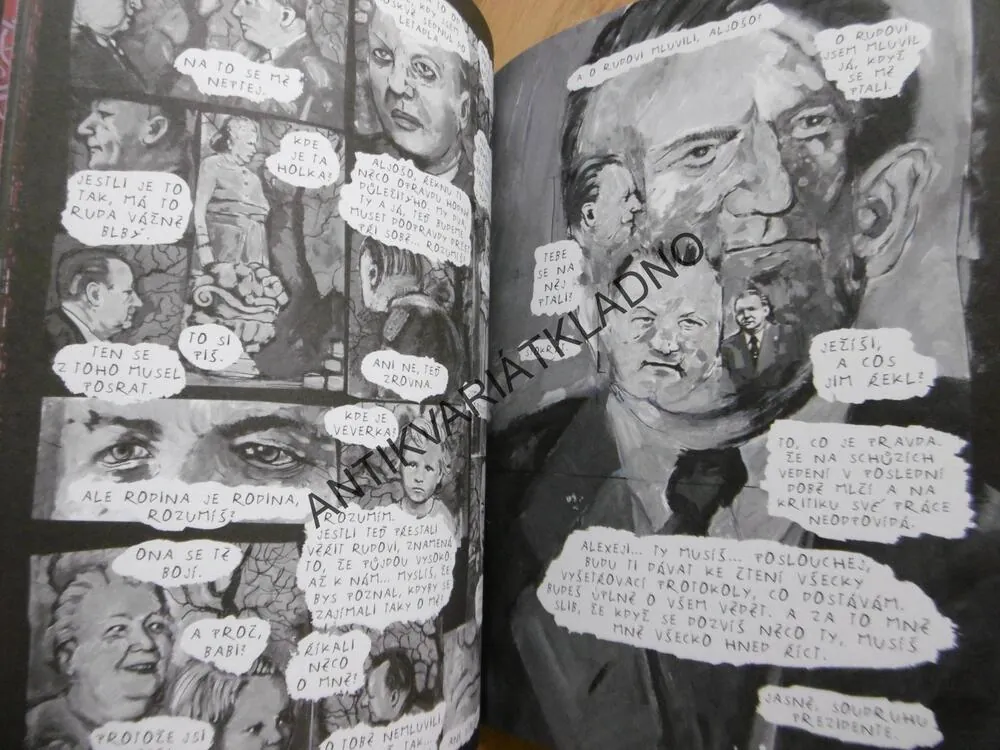 NA TO SE MĚ
NEPTEJ.
LETADLA A
JESTLI JE TO
TAK, MÁ TO
RUDA VÁŽNĚ
BLBÝ.
KDE
JE TA
HOLKA?
ALJOŠO, ŘEKNU TI
NĚCO OPRAVDU HODNĚ
DŮLEŽITÝHO. MY DVA,
TY A JÁ, TEĎ BUDEME
MUSET DOOPRAVDY DRŽET
PŘI SOBĚ... ROZUMÍŠ
TEN SE
Z TOHO MUSEL
POSRAT.
TO SI
PIŠ.
ANI NE, TEĎ
ZROVNA.
ALE RODINA JE RODINA,
ROZUMÍŠ?
KDE JE
VEVERKA?
ROZUMÍM.
JESTLI TEĎ PŘESTALI
VĚŘIT RUDOVI, ZNAMENÁ
TO, ŽE PŮJDOU VYSOKO,
AŽ K NÁM... MYSLÍŠ, ŽE
BYS POZNAL, KDYBY SE
ZAJÍMALI TAKY O MĚ?
ONA SE TĚ
BOJÍ.
A PROČ,
BABI?
PROTOŽE JSI
ŘÍKALI
NĚCO
O MNĚ?
O TOBĚ NEMLUVILI,
TAK...
A O RUDOVI MLUVILI, ALJOŠO?
O RUDOVI
JSEM MLUVIL
JÁ, KDYŽ
SE MĚ
PTALI.
TEBE
SE NA
NĚJ
PTALI?
JEŽÍŠI,
A COS
JIM ŘEKL?
TO, CO JE PRAVDA.
ŽE NA SCHŮZÍCH
VEDENÍ V POSLEDNÍ
DOBĚ MLČÍ A NA
KRITIKU SVÉ PRÁCE
NEODPOVÍDÁ.
ALEXEJI... TY MUSÍŠ... POSLOUCHEJ,
BUDU TI DÁVAT KE ČTENÍ VŠECKY
VYŠETŘOVACÍ PROTOKOLY, CO DOSTÁVÁM.
BUDEŠ ÚPLNĚ O VŠEM VĚDĚT. A ZA TO MNĚ
SLIB, ŽE KDYŽ SE DOZVÍŠ NĚCO TY, MUSÍŠ
MNĚ VŠECKO HNED ŘÍCT.
JASNĚ, SOUDRUHU
PREZIDENTE.
ANTIKVARIÁTKLADNO